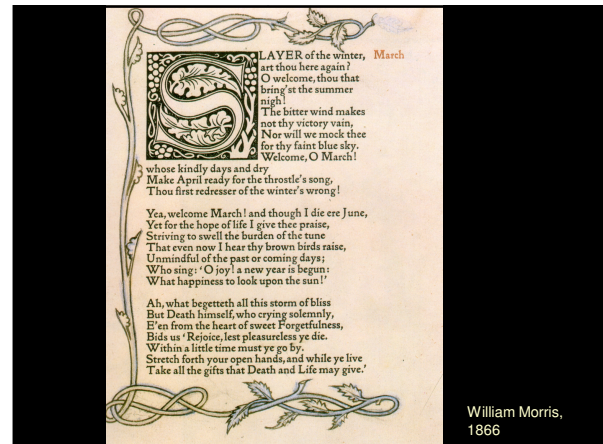 SLAYER of the winter, March
art thou here again?
O welcome, thou that
bring'st the summer
nigh!
The bitter wind makes
not thy victory vain,
Nor will we mock thee
for thy faint blue sky.
Welcome, O March!
whose kindly days and dry
Make April ready for the throstle's song,
Thou first redresser of the winter's wrong!

Yea, welcome March! and though I die ere June,
Yet for the hope of life I give thee praise,
Striving to swell the burden of the tune
That even now I hear thy brown birds raise,
Unmindful of the past or coming days;
Who sing: 'O joy! a new year is begun:
What happiness to look upon the sun!'

Ah, what begetteth all this storm of bliss
But Death himself, who crying solemnly,
E'en from the heart of sweet Forgetfulness,
Bids us 'Rejoice, lest pleasureless ye die.
Within a little time must ye go by.
Stretch forth your open hands, and while ye live
Take all the gifts that Death and Life may give.'

William Morris,
1866